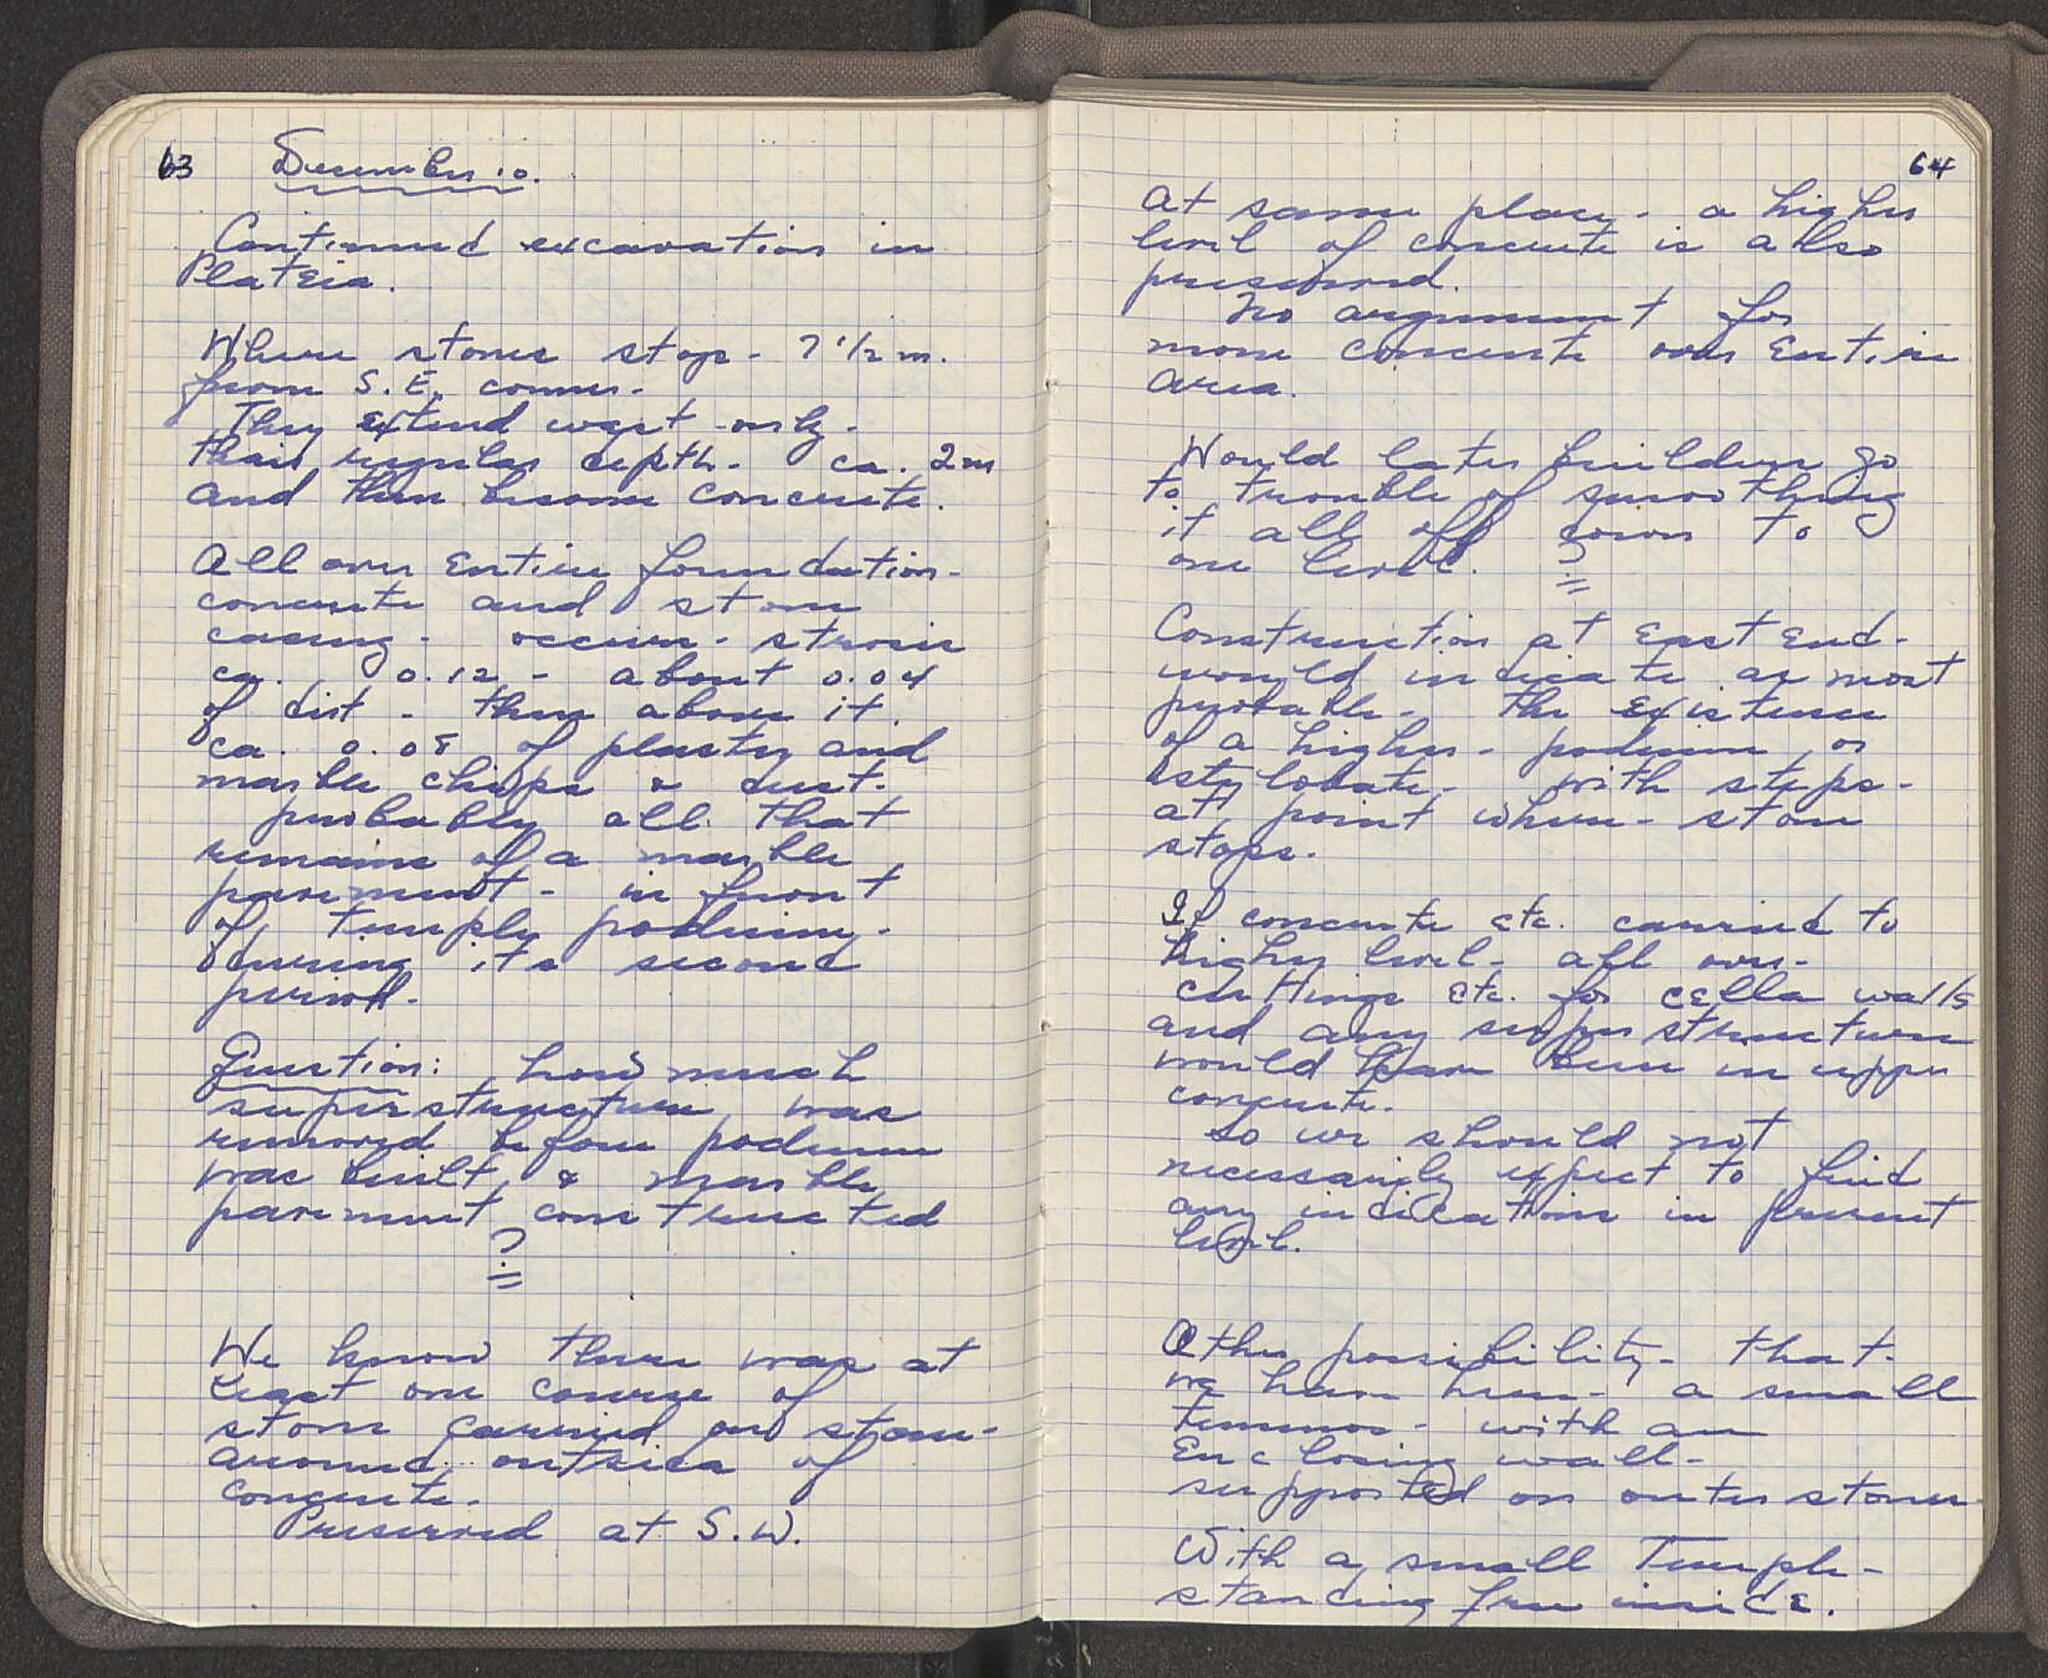 63 December 10.
Continued excavation in
Plateia.
Where stones stop - 7 1/2 m.
from S.E. corner.
They extend west only -
their regular depth - ca. 2m
and then become concrete.
All over Entire foundation -
concrete and stone
casing - occurs - strosis
ca. 0.12 - about 0.04
of dirt - then above it
ca. 0.08 of plaster and
marble chips & dust.
probably all that
remains of a marble
pavement - in front
of temple podium -
during its second
period.
Question: how much
superstructure was
removed before podium
was built & marble
pavement constructed
?
We know there was at
least one course of
stone carried on stone -
around outside of
concrete.
Preserved at S.W.
64
At same place - a higher
level of concrete is also
preserved.
No argument for
more concrete over Entire
area.
Would later builders go
to trouble of smoothing
it all off down to
one level. ?
Construction at East End -
would indicate as most
probable - the Existence
of a higher - podium or
stylobate - with steps -
at point where - stone
stops.
If concrete etc. carried to
higher level - all over -
cuttings Etc. for cella walls
and any superstructure
would have been in upper
concrete.
So we should not
necessarily expect to find
any indications in present
level.
Other possibility - that -
we have here - a small
temenos - with an
Enclosing wall -
supported on outer stones
With a small Temple -
standing free inside.